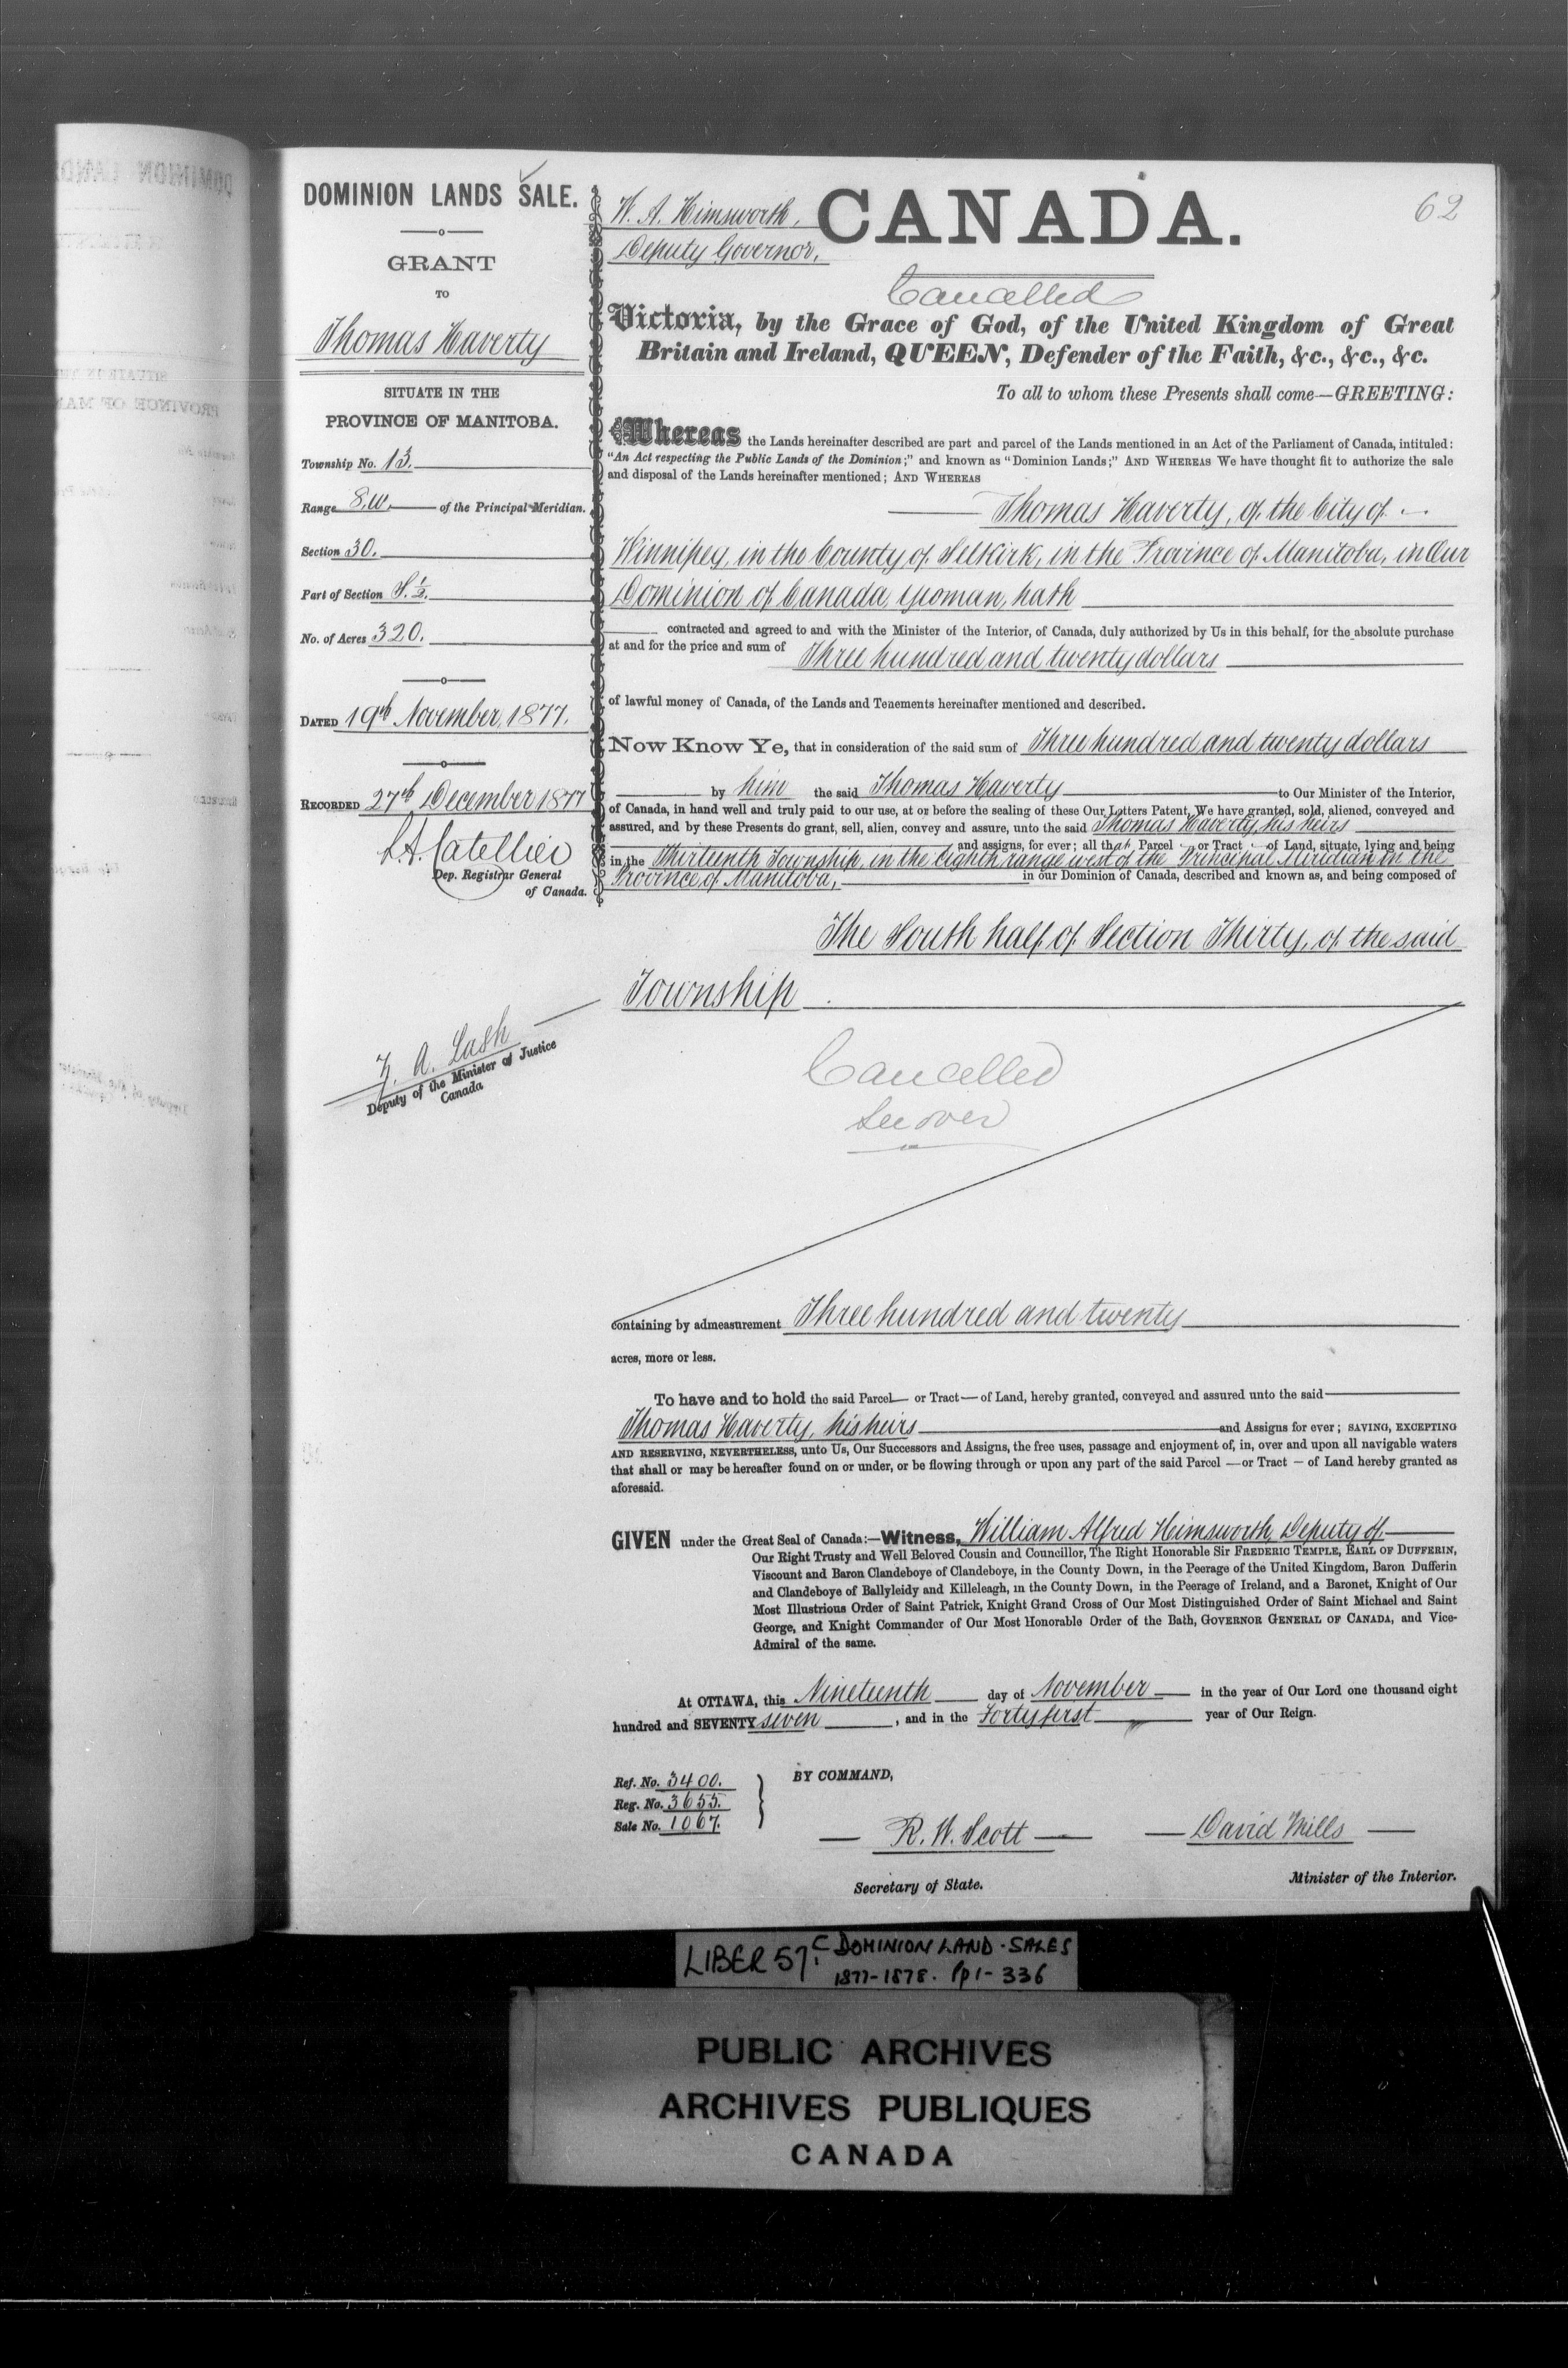 DOMINION LANDS SALE.
GRANT
TO
Thomas Haverty
SITUATE IN THE
PROVINCE OF MANITOBA.
Township No. 13.
Range 8.W. of the Principal Meridian.
Section 30.
Part of Section S. 1/2.
No. of Acres 320.
DATED 19th November, 1877.
RECORDED 27th December 1877
L.A. Catellier
Dep. Registrar General
of Canada.
Z. A. Lash
Deputy of the Minister of Justice
Canada
W. A. Himsworth,
Deputy Governor.
CANADA.
62
Cancelled
Victoria, by the Grace of God, of the United Kingdom of Great
Britain and Ireland, QUEEN, Defender of the Faith, &c., &c., &c.
To all to whom these Presents shall come—GREETING:
Whereas the Lands hereinafter described are part and parcel of the Lands mentioned in an Act of the Parliament of Canada, intituled:
"An Act respecting the Public Lands of the Dominion;" and known as "Dominion Lands;" AND WHEREAS We have thought fit to authorize the sale
and disposal of the Lands hereinafter mentioned; AND WHEREAS
Thomas Haverty, of the City of
Winnipeg, in the County of Selkirk, in the Province of Manitoba, in Our
Dominion of Canada, yeoman, hath
contracted and agreed to and with the Minister of the Interior, of Canada, duly authorized by Us in this behalf, for the absolute purchase
at and for the price and sum of Three hundred and twenty dollars
of lawful money of Canada, of the Lands and Tenements hereinafter mentioned and described.
Now Know Ye, that in consideration of the said sum of Three hundred and twenty dollars
by him the said Thomas Haverty to Our Minister of the Interior,
of Canada, in hand well and truly paid to our use, at or before the sealing of these Our Letters Patent, We have granted, sold, aliened, conveyed and
assured, and by these Presents do grant, sell, alien, convey and assure, unto the said Thomas Haverty, his heirs
and assigns, for ever; all that Parcel or Tract of Land, situate, lying and being
in the Thirteenth Township, in the Eighth range west of the Principal Meridian in the
Province of Manitoba, in our Dominion of Canada, described and known as, and being composed of
The South half of Section Thirty, of the said
Township.
Cancelled
See over
containing by admeasurement Three hundred and twenty
acres, more or less.
To have and to hold the said Parcel— or Tract— of Land, hereby granted, conveyed and assured unto the said
Thomas Haverty, his heirs and Assigns for ever; SAVING, EXCEPTING
AND RESERVING, NEVERTHELESS, unto Us, Our Successors and Assigns, the free uses, passage and enjoyment of, in, over and upon all navigable waters
that shall or may be hereafter found on or under, or be flowing through or upon any part of the said Parcel —or Tract — of Land hereby granted as
aforesaid.
GIVEN under the Great Seal of Canada:—Witness, William Alfred Himsworth, Deputy of
Our Right Trusty and Well Beloved Cousin and Councillor, The Right Honorable Sir FREDERIC TEMPLE, EARL OF DUFFERIN,
Viscount and Baron Clandeboye of Clandeboye, in the County Down, in the Peerage of the United Kingdom, Baron Dufferin
and Clandeboye of Ballyleidy and Killeleagh, in the County Down, in the Peerage of Ireland, and a Baronet, Knight of Our
Most Illustrious Order of Saint Patrick, Knight Grand Cross of Our Most Distinguished Order of Saint Michael and Saint
George, and Knight Commander of Our Most Honorable Order of the Bath, GOVERNOR GENERAL OF CANADA, and Vice-
Admiral of the same.
At OTTAWA, this Nineteenth day of November in the year of Our Lord one thousand eight
hundred and SEVENTY seven, and in the Forty first year of Our Reign.
Ref. No. 3400.
Reg. No. 3655.
Sale No. 1067.
BY COMMAND,
R. W. Scott
Secretary of State.
David Mills
Minister of the Interior.
LIBER 57C DOMINION LAND - SALES
1877-1878. Pp 1-336
PUBLIC ARCHIVES
ARCHIVES PUBLIQUES
CANADA